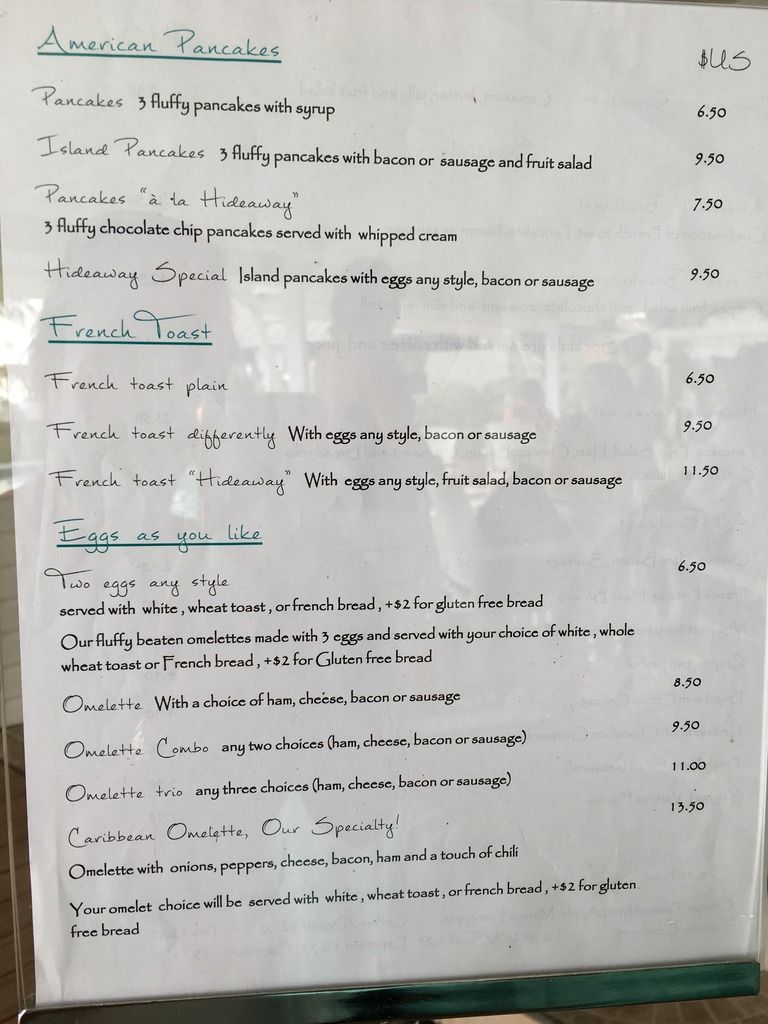 American Pancakes
$US
Pancakes 3 fluffy pancakes with syrup 6.50
Island Pancakes 3 fluffy pancakes with bacon or sausage and fruit salad 9.50
Pancakes "à la Hideaway" 7.50
3 fluffy chocolate chip pancakes served with whipped cream
Hideaway Special Island pancakes with eggs any style, bacon or sausage 9.50
French Toast
French toast plain 6.50
French toast differently With eggs any style, bacon or sausage 9.50
French toast "Hideaway" With eggs any style, fruit salad, bacon or sausage 11.50
Eggs as you like
Two eggs any style 6.50
served with white, wheat toast, or french bread, +$2 for gluten free bread
Our fluffy beaten omelettes made with 3 eggs and served with your choice of white, whole
wheat toast or French bread, +$2 for Gluten free bread
Omelette With a choice of ham, cheese, bacon or sausage 8.50
Omelette Combo any two choices (ham, cheese, bacon or sausage) 9.50
Omelette trio any three choices (ham, cheese, bacon or sausage) 11.00
Caribbean Omelette, Our Specialty! 13.50
Omelette with onions, peppers, cheese, bacon, ham and a touch of chili
Your omelet choice will be served with white, wheat toast, or french bread, +$2 for gluten
free bread